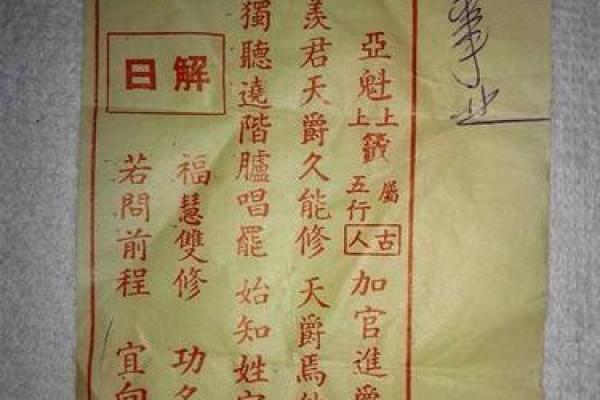 事业
亞魁 上上籤 屬五行 古人 加官進
羨君天爵久能修 天爵焉
獨聽遶階臚唱罷 始知姓
解曰
福慧雙修 功名
若問前程 宜向